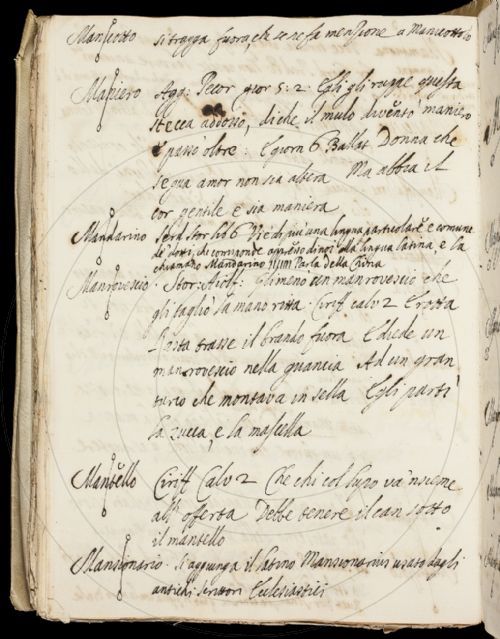 Manicotto si tragga fuora, che se ne fa menzione a Manicottolo
Maniero Agg: Pecor gior 5: 2: Egli gli ruppe questa
stecca addosso, di che il mulo diventò maniero
e passo oltre: E giorn 6 Ballat Donna che
segua amor non sia altera Ma abbia il
cor gentile e sia maniera
Mandarino Serd Stor lib 6 Ne di più una lingua particolare e comune
de dotti, che corrisponde appresso di noi alla lingua latina, e la
chiamano Mandarina Parla della China
Manrovescio Stor: Aiolf: Gli menò un manrovescio che
gli tagliò la mano ritta Ciriff calv 2 E ratta
trasse il brando fuora E diede un
manrovescio nella guancia Ad un gran
turco che montava in sella E gli partì
la zucca, e la mascella
Mantello Ciriff Calv 2 Che chi col lupo va 'nsieme
all' offerta Debbe tenere il can sotto
il mantello
Mansionario si aggiunga il latino Mansionarius usato dagli
antichi scrittori Eclesiastici